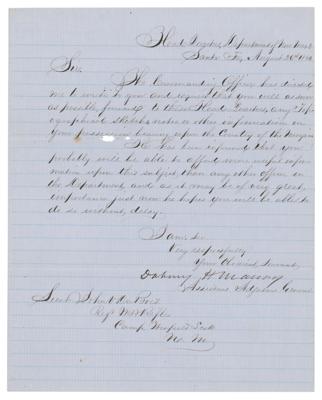 Head Quarters, Department of New Mex.
Santa Fe, August 26th 18
Sir,
The Commanding Officer has directed
me to write to you and request that you will as soon
as possible, forward to these Head Quarters, any Top-
ographical Sketch, notes or other information in
your possession bearing upon the Country of the Navajos
He has been informed that you
probably will be able to afford more useful infor-
mation upon this subject, than any other officer in
the Department, and as it may be of very great
importance just now he hopes you will be able to
do so without delay.
I am, Sir
Very respectfully
Your Obedient Servant,
Dabney H Maury
Assistant Adjutant General
Lieut John
Regt Mtd Rifles
Camp Winfield Scott
N. M.